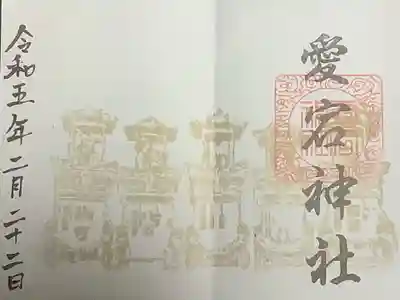 愛宕神社
令和五年二月二十二日